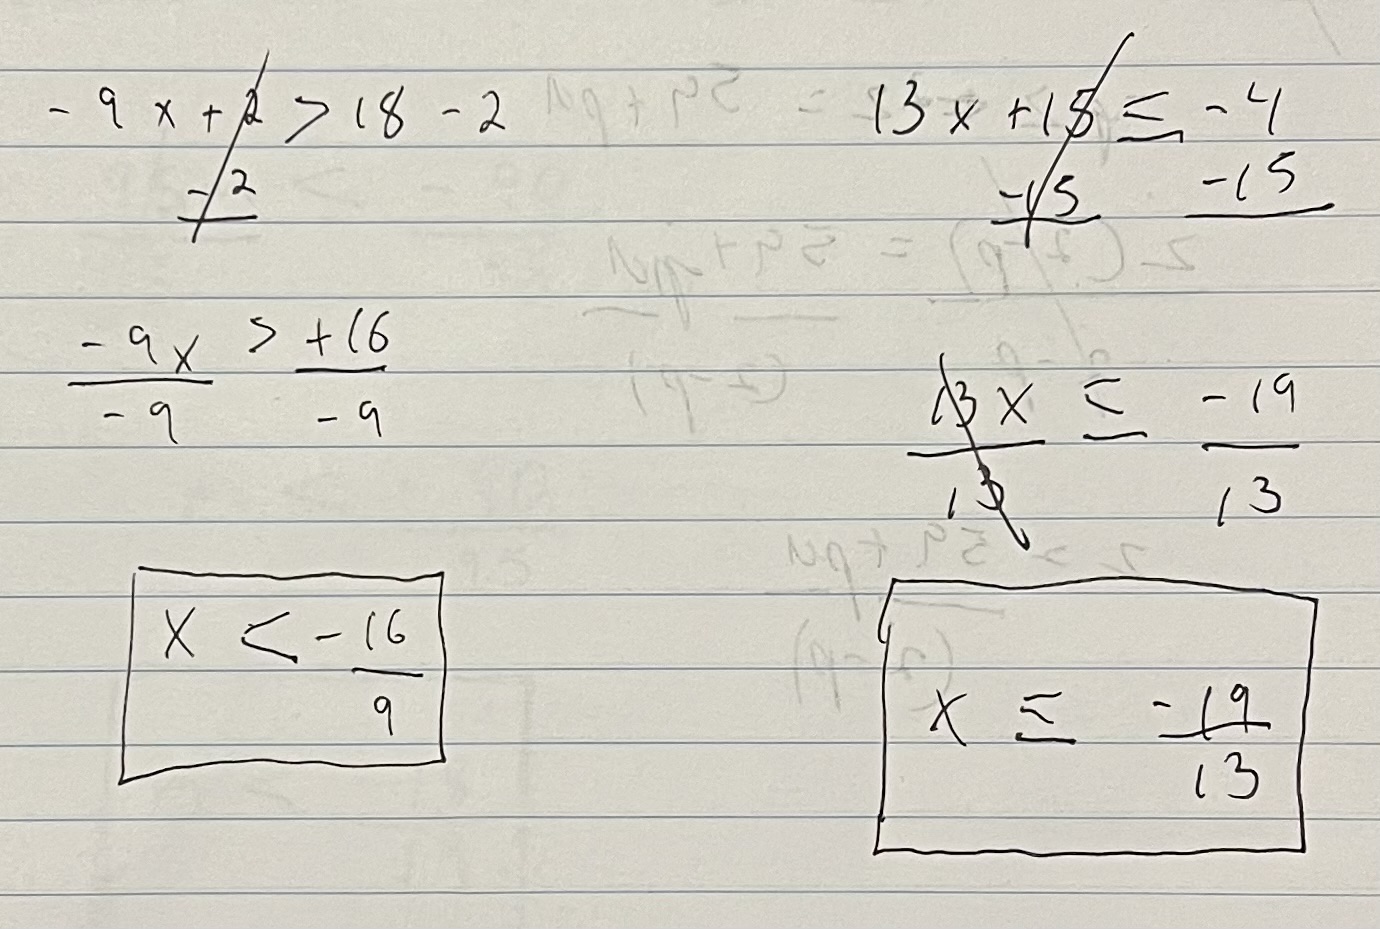 -9x+2>18-2
-2
-9x > +16
-9 -9
x < -16
9
13x+15≤-4
-15 -15
13x ≤ -19
13 13
x ≤ -19
13